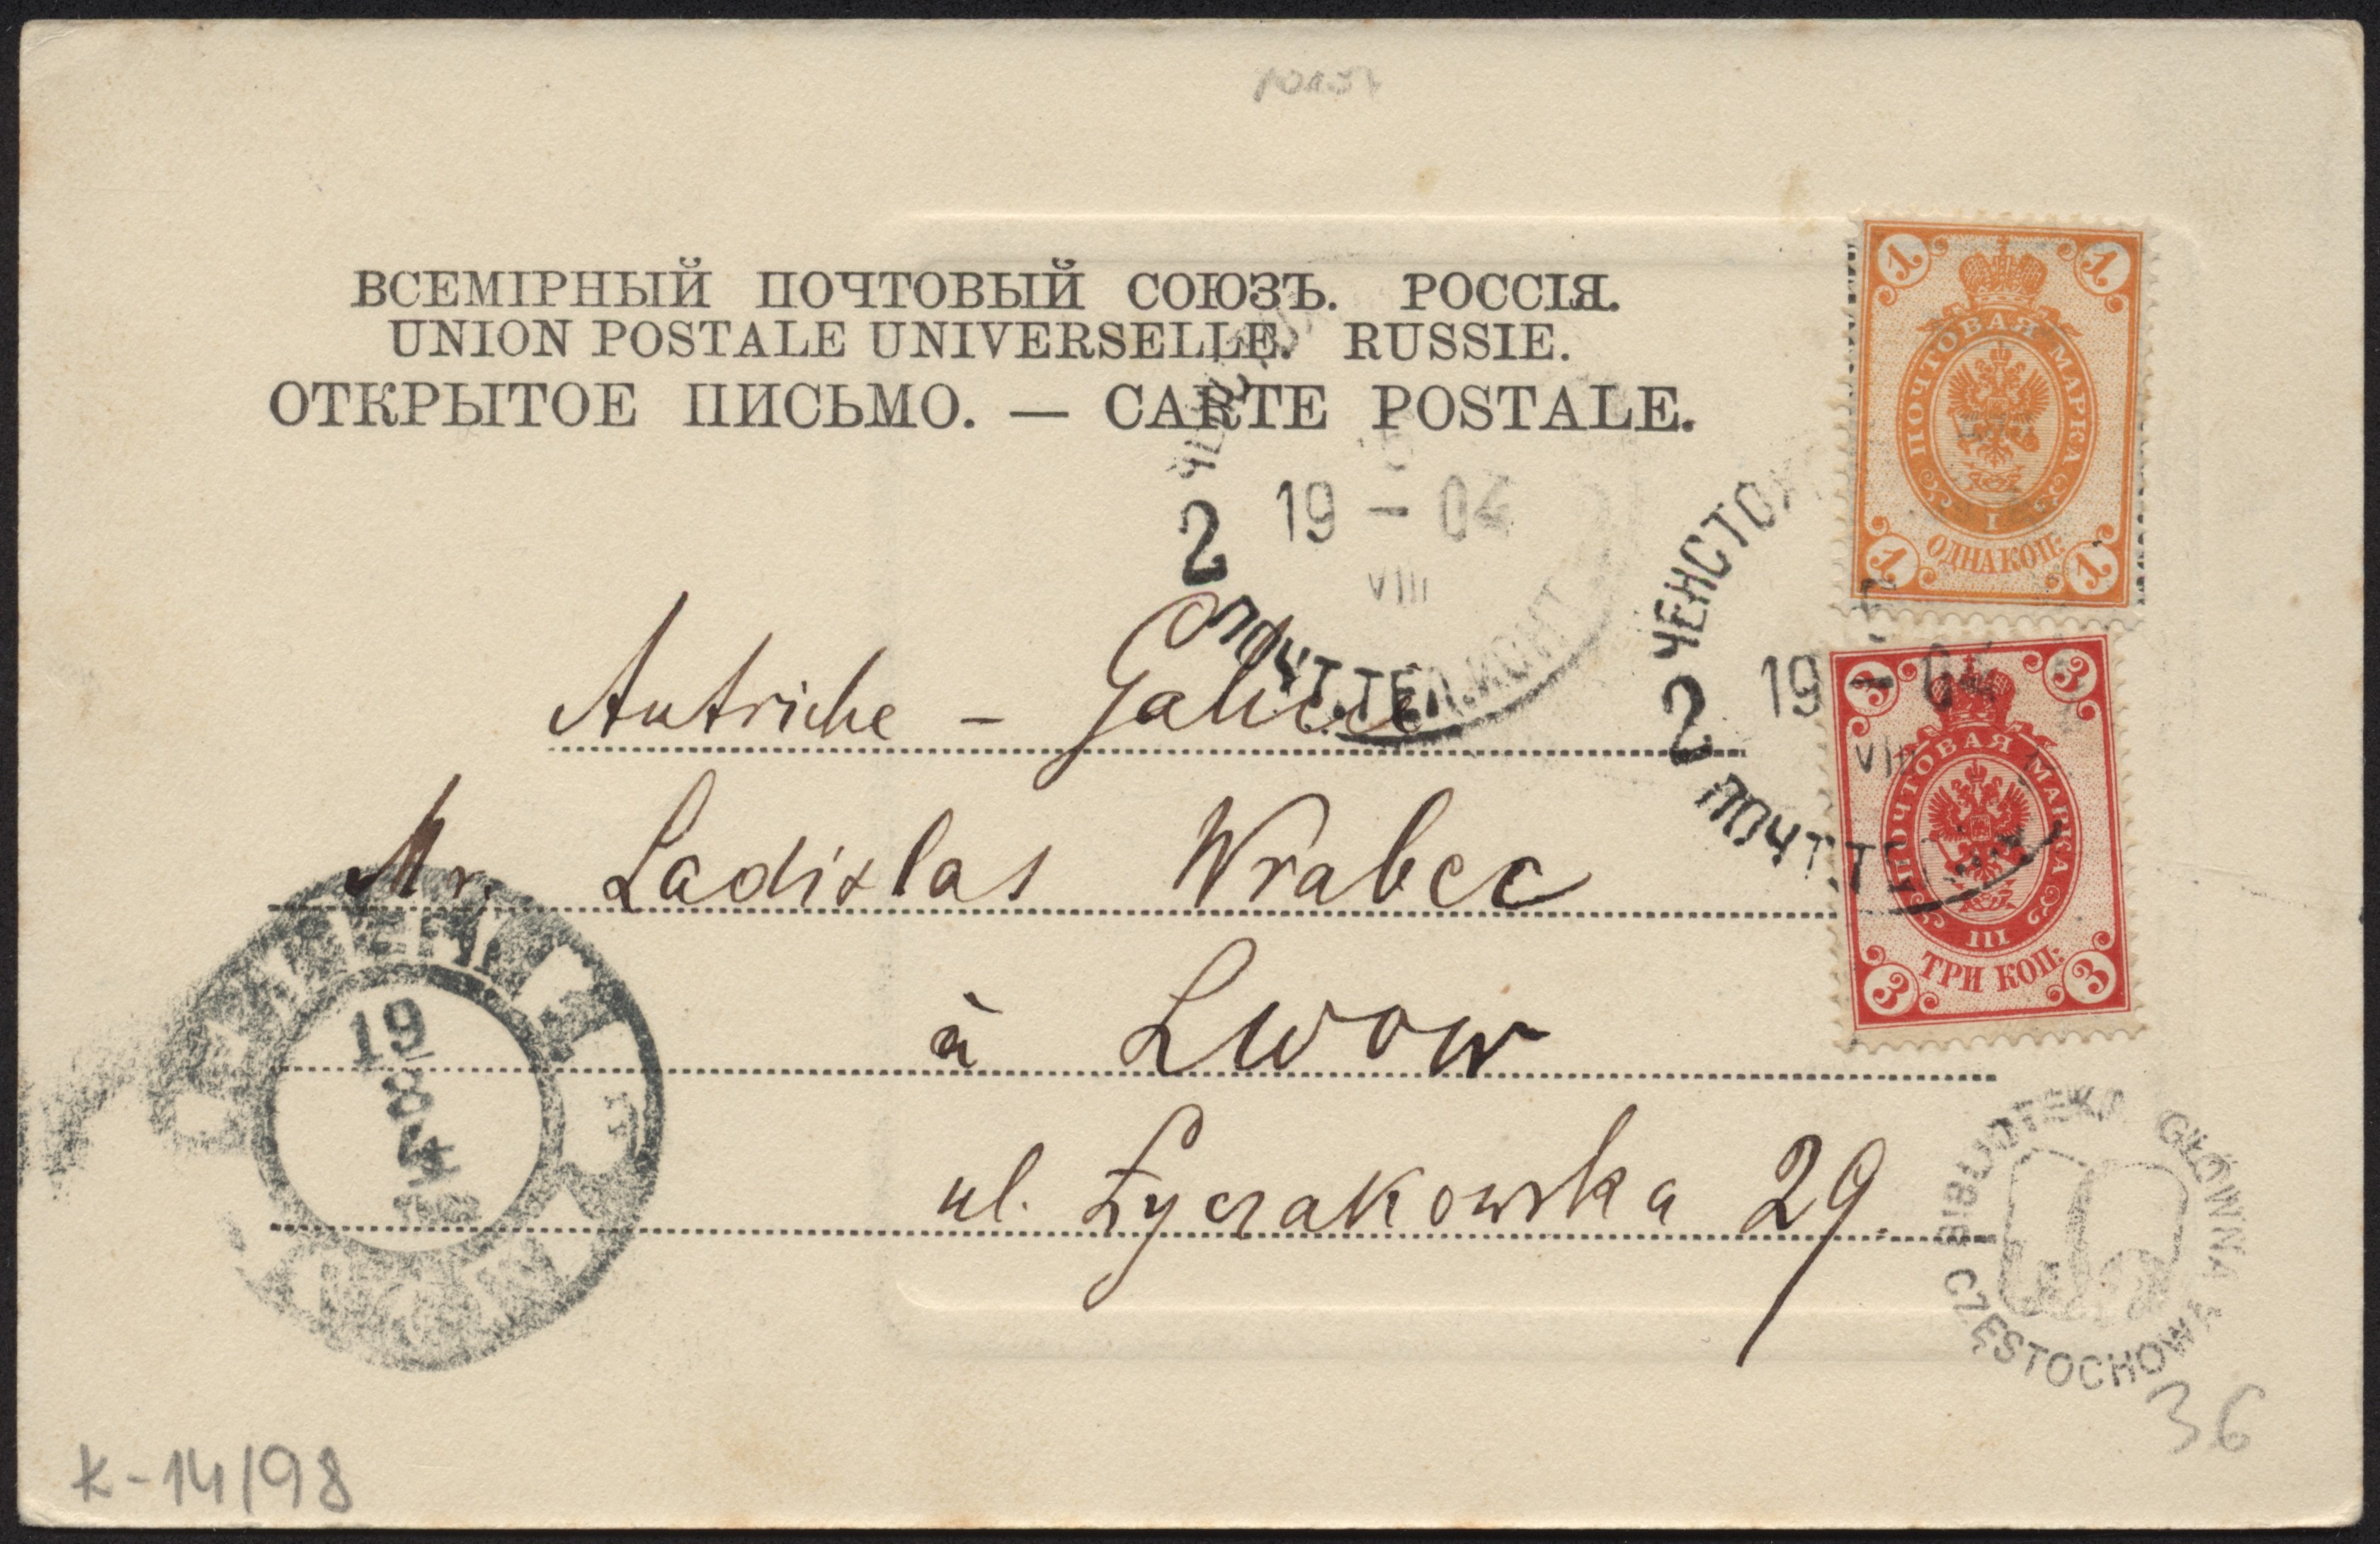 ВСЕМІРНЫЙ ПОЧТОВЫЙ СОЮЗЪ. РОССІЯ.
UNION POSTALE UNIVERSELLE. RUSSIE.
ОТКРЫТОЕ ПИСЬМО. — CARTE POSTALE.
1 1
ПОЧТОВАЯ МАРКА
I
ОДНА КОП:
1 1
2 19 - 04
VIII
ПОЧТ.ТЕЛ.КОНТ
ЧЕНСТОХ
2 19 - 04
VIII
ПОЧТ.ТЕ
3 3
ПОЧТОВАЯ МАРКА
III
ТРИ КОП:
3 3
Autriche - Galicie
Mr. Ladislas Wrabec
à Lwow
ul. Łyczakowska 29.
19
8
4
BIBLIOTEKA GŁÓWNA W CZĘSTOCHOWIE
36
K-14/98